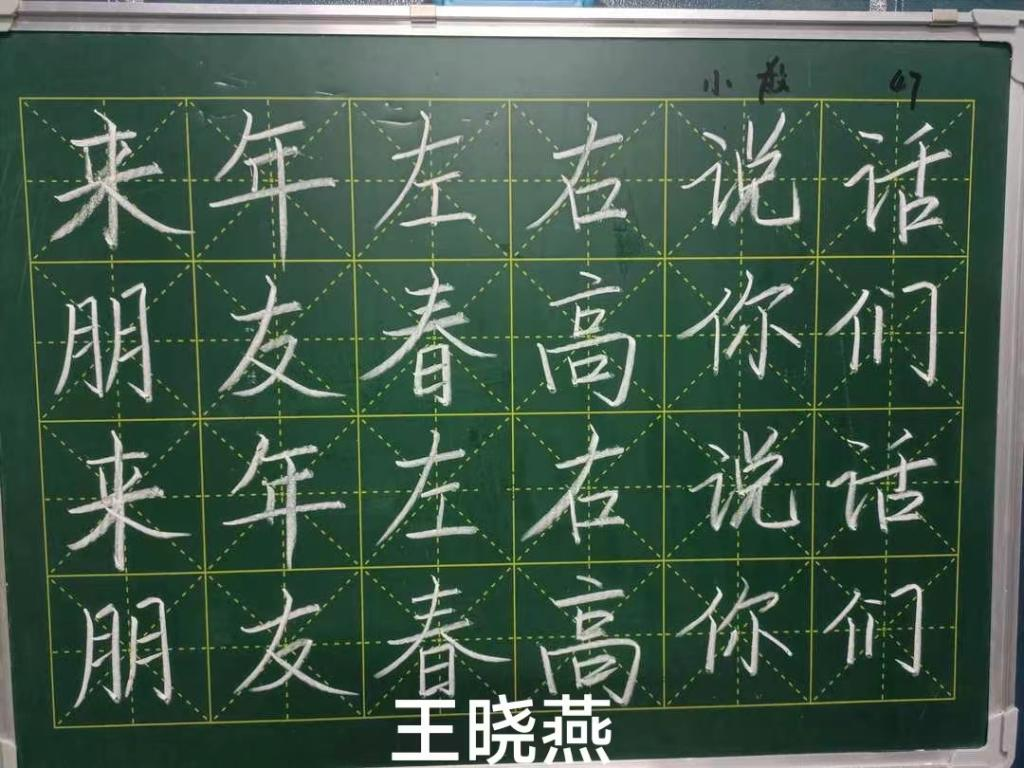 小教 47
来年左右说话
朋友春高你们
来年左右说话
朋友春高你们
王晓燕